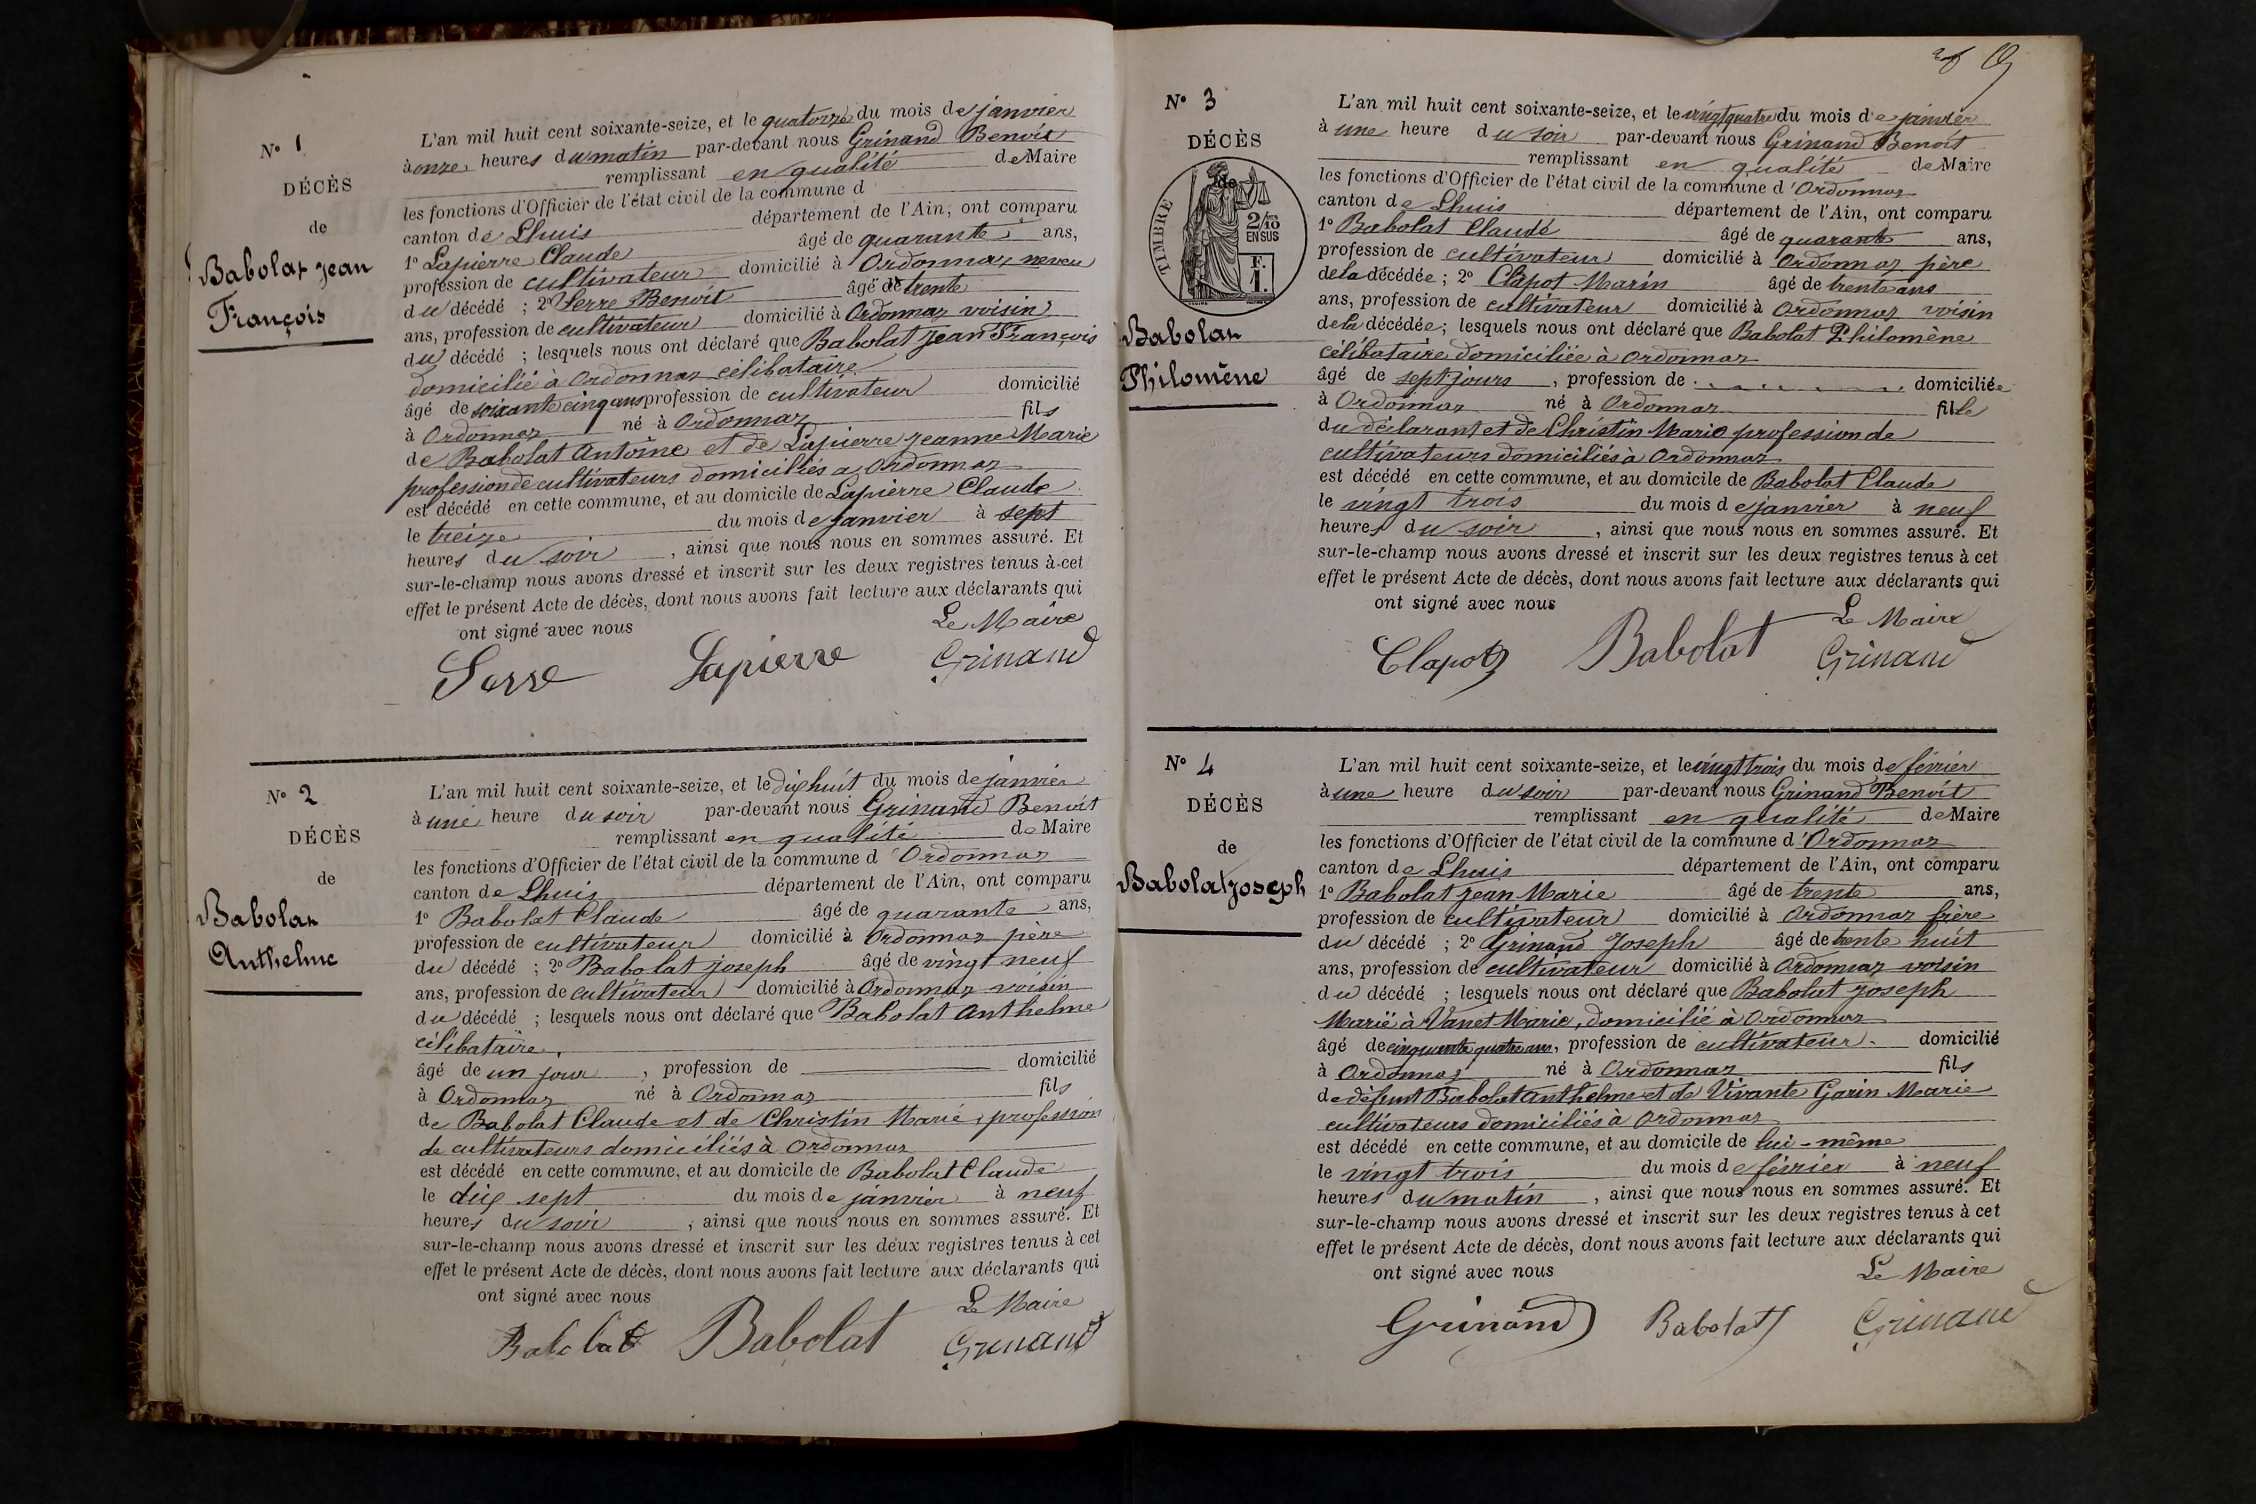 N° 1
DÉCÈS
de
Babolat Jean
François
L'an mil huit cent soixante-seize, et le quatorze du mois de janvier
à onze heures du matin par-devant nous Grinand Benoit
remplissant en qualité de Maire
les fonctions d'Officier de l'état civil de la commune d
canton de Lhuis département de l'Ain, ont comparu
1° Lapierre Claude âgé de quarante ans,
profession de cultivateur domicilié à Ordonnaz neveu
du décédé ; 2° Serre Benoit âgé de trente
ans, profession de cultivateur domicilié à Ordonnaz voisin
du décédé ; lesquels nous ont déclaré que Babolat Jean François
domicilié à Ordonnaz célibataire
âgé de soixante cinq ans profession de cultivateur domicilié
à Ordonnaz né à Ordonnaz fils
de Babolat Antoine et de Lapierre Jeanne Marie
profession de cultivateurs domiciliés à Ordonnaz
est décédé en cette commune, et au domicile de Lapierre Claude
le treize du mois de janvier à sept
heures du soir , ainsi que nous nous en sommes assuré. Et
sur-le-champ nous avons dressé et inscrit sur les deux registres tenus à cet
effet le présent Acte de décès, dont nous avons fait lecture aux déclarants qui
ont signé avec nous
Le Maire
Serre Lapierre Grinand
N° 2
DÉCÈS
de
Babolat
Anthelme
L'an mil huit cent soixante-seize, et le dix huit du mois de janvier
à une heure du soir par-devant nous Grinand Benoit
remplissant en qualité de Maire
les fonctions d'Officier de l'état civil de la commune d'Ordonnaz
canton de Lhuis département de l'Ain, ont comparu
1° Babolat Claude âgé de quarante ans,
profession de cultivateur domicilié à Ordonnaz père
du décédé ; 2° Babolat joseph âgé de vingt neuf
ans, profession de cultivateur domicilié à Ordonnaz voisin
du décédé ; lesquels nous ont déclaré que Babolat Anthelme
célibataire,
âgé de un jour , profession de domicilié
à Ordonnaz né à Ordonnaz fils
de Babolat Claude et de Christin Marie, profession
de cultivateurs domiciliés à Ordonnaz
est décédé en cette commune, et au domicile de Babolat Claude
le dix sept du mois de janvier à neuf
heures du soir , ainsi que nous nous en sommes assuré. Et
sur-le-champ nous avons dressé et inscrit sur les deux registres tenus à cet
effet le présent Acte de décès, dont nous avons fait lecture aux déclarants qui
ont signé avec nous
Le Maire
Babolat Babolat Grinand
N° 3
DÉCÈS
de
TIMBRE
2/10
EN SUS
F.
1.
Babolat
Philomène
L'an mil huit cent soixante-seize, et le vingt quatre du mois de janvier
à une heure du soir par-devant nous Grinand Benoit
remplissant en qualité de Maire
les fonctions d'Officier de l'état civil de la commune d'Ordonnaz
canton de Lhuis département de l'Ain, ont comparu
1° Babolat Claude âgé de quarante ans,
profession de cultivateur domicilié à Ordonnaz père
de la décédée ; 2° Clapot Marin âgé de trente ans
ans, profession de cultivateur domicilié à Ordonnaz voisin
de la décédée ; lesquels nous ont déclaré que Babolat Philomène
célibataire domiciliée à Ordonnaz
âgé de sept jours , profession de domiciliée
à Ordonnaz né à Ordonnaz fille
du déclarant et de Christin Marie profession de
cultivateurs domiciliés à Ordonnaz
est décédé en cette commune, et au domicile de Babolat Claude
le vingt trois du mois de janvier à neuf
heures du soir , ainsi que nous nous en sommes assuré. Et
sur-le-champ nous avons dressé et inscrit sur les deux registres tenus à cet
effet le présent Acte de décès, dont nous avons fait lecture aux déclarants qui
ont signé avec nous
Le Maire
Clapot Babolat Grinand
N° 4
DÉCÈS
de
Babolat joseph
L'an mil huit cent soixante-seize, et le vingt trois du mois de février
à une heure du soir par-devant nous Grinand Benoit
remplissant en qualité de Maire
les fonctions d'Officier de l'état civil de la commune d'Ordonnaz
canton de Lhuis département de l'Ain, ont comparu
1° Babolat Jean Marie âgé de trente ans,
profession de cultivateur domicilié à Ordonnaz frère
du décédé ; 2° Grinand Joseph âgé de trente huit
ans, profession de cultivateur domicilié à Ordonnaz voisin
du décédé ; lesquels nous ont déclaré que Babolat joseph
Marié à Vanet Marie, domicilié à Ordonnaz
âgé de cinquante quatre ans, profession de cultivateur domicilié
à Ordonnaz né à Ordonnaz fils
de défunt Babolat Anthelme et de Vivante Garin Marie
cultivateurs domiciliés à Ordonnaz
est décédé en cette commune, et au domicile de lui-même
le vingt trois du mois de février à neuf
heures du matin , ainsi que nous nous en sommes assuré. Et
sur-le-champ nous avons dressé et inscrit sur les deux registres tenus à cet
effet le présent Acte de décès, dont nous avons fait lecture aux déclarants qui
ont signé avec nous
Le Maire
Grinand Babolat Grinand